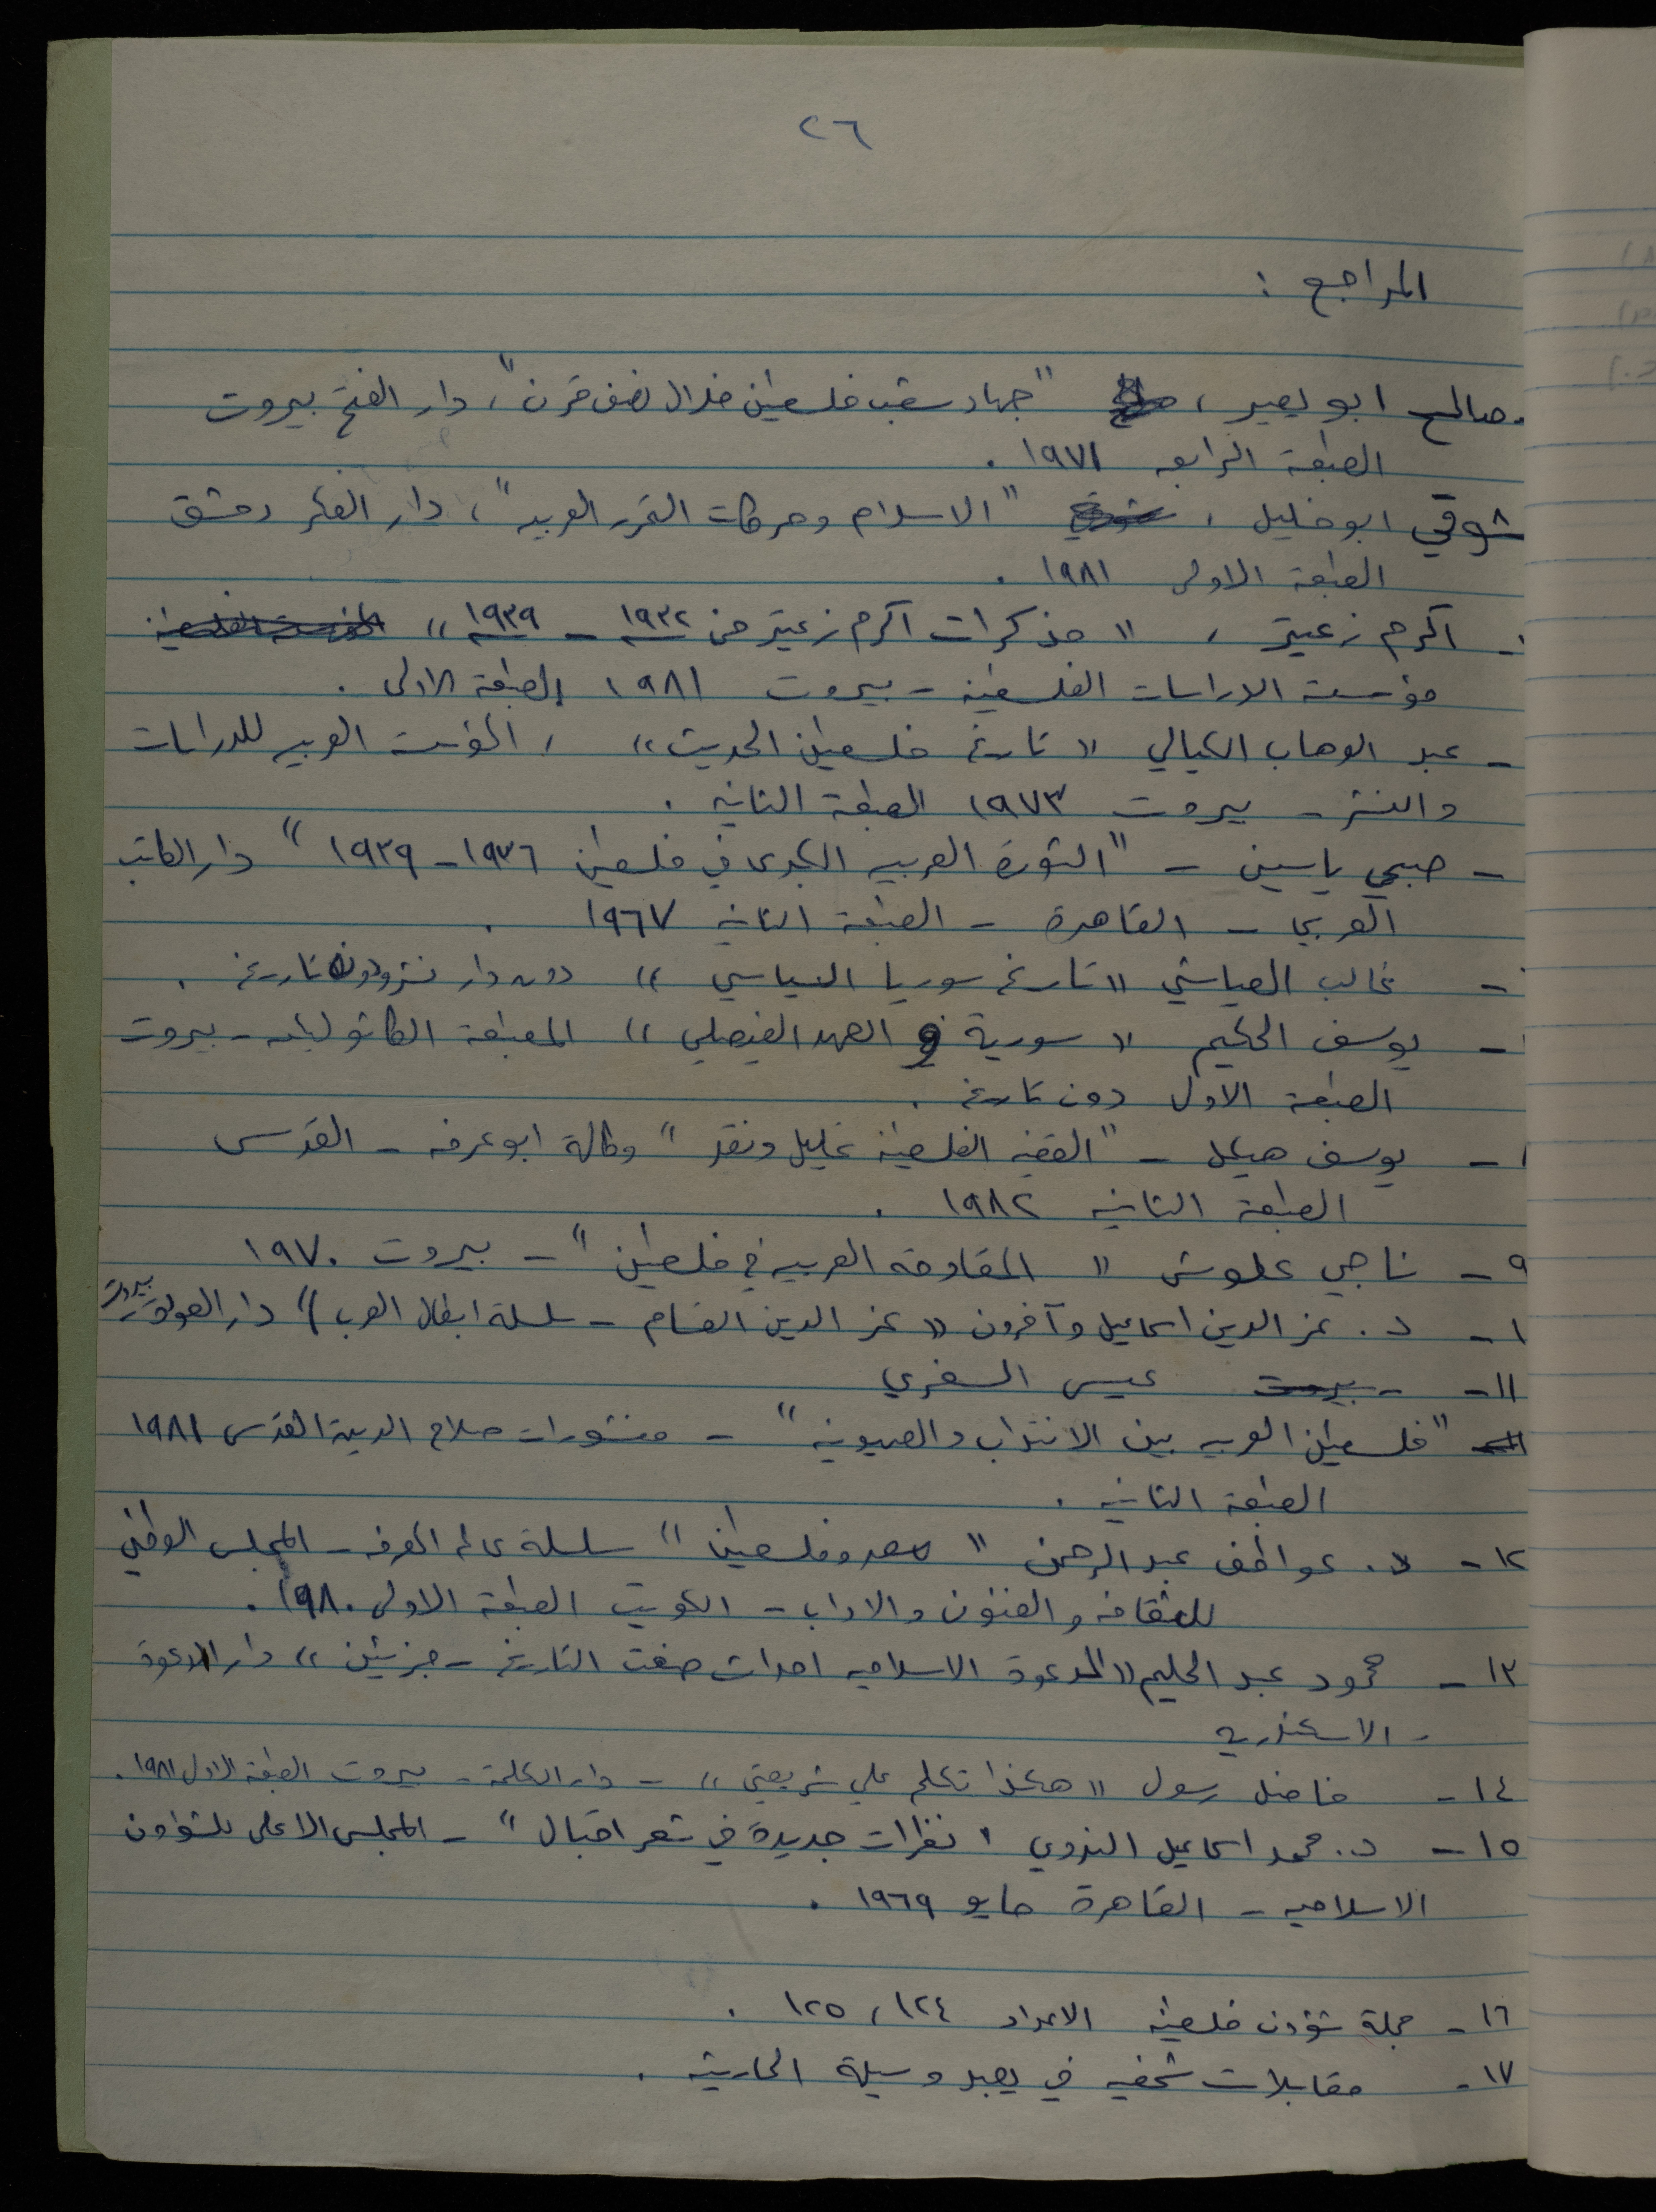 ٢٦
المراجع :
صالح ابو يصير ، "جهاد شعب فلسطين خلال نصف قرن" ، دار الفتح بيروت
الطبعة الرابعه ١٩٧١ .
شوقي ابو خليل ، "الاسلام وحركات التحرر العربيه" ، دار الفكر دمشق
الطبعة الاولى ١٩٨١ .
- اكرم زعيتر ، " مذكرات اكرم زعيتر من ١٩٣٢ - ١٩٣٩ " المؤسسة الفلسطينية
مؤسسة الدراسات الفلسطينيه - بيروت ١٩٨١ الطبعة الاولى .
- عبد الوهاب الكيالي " تاريخ فلسطين الحديث " ، المؤسسة العربيه للدراسات
والنشر - بيروت ١٩٧٣ الطبعة الثانيه .
- صبحي ياسين - "الثورة العربيه الكبرى في فلسطين ١٩٣٦ - ١٩٣٩ " دار الكاتب
العربي - القاهرة - الطبعة الثانيه ١٩٦٧ .
- غالب العياشي " تاريخ سوريا السياسي " دون دار نشر ودون تاريخ .
- يوسف الحكيم " سورية و العهد الفيصلي " المطبعة الكاثوليكيه - بيروت
الطبعة الاولى دون تاريخ .
- يوسف هيكل - "القضيه الفلسطينيه تحليل ونقد " وكالة ابو عرفه - القدس
الطبعة الثانيه ١٩٨٢ .
٩ - ناجي علوش " المقاومة العربيه في فلسطين " - بيروت ١٩٧٠
١ - د . عز الدين اسماعيل وآخرون " عز الدين القسام - سلسلة ابطال العرب " دار العودة - بيروت
١١ - - بيروت عيسى السفري
"فلسطين العربيه بين الانتداب والصهيونيه " - منشورات صلاح الدين القدس ١٩٨١
الطبعة الثانيه .
١٢ - د. عواطف عبد الرحمن " مصر وفلسطين " سلسلة عالم المعرفه - المجلس الوطني
للثقافه والفنون والاداب - الكويت الطبعة الاولى ١٩٨٠ .
١٣ - محمود عبد الحليم " الدعوة الاسلاميه احداث صنعت التاريخ - جزئين " دار الدعوة
- الاسكندريه
١٤ - فاضل رسول " هكذا تكلم علي شريعتي " - دار الكلمة - بيروت الطبعة الاولى ١٩٨١ .
١٥ - د. محمد اسماعيل الندوي " نظرات جديدة في شعر اقبال " - المجلس الاعلى للشؤون
الاسلاميه - القاهرة مايو ١٩٦٩ .
١٦ - مجلة شؤون فلسطينيه الاعداد ١٢٤ ، ١٢٥ .
١٧ - مقابلات شخصيه في يعبد وسيلة الحارثيه .